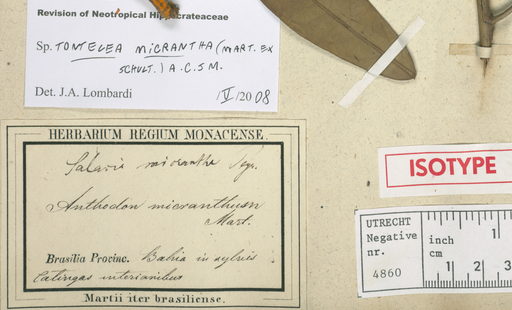 Revision of Neotropical Hippocrateaceae
Sp. TONTELEA MICRANTHA (MART. EX
SCHULT.) A.C.SM.
Det. J.A. Lombardi /V/2008
HERBARIUM REGIUM MONACENSE.
Salacia micrantha
Anthodon micranthum
Mart.
Brasilia Provinc. Bahia in sylvis
Catingas interioribus
Martii iter brasiliense.
ISOTYPE
UTRECHT
Negative
nr.
4860
inch 1
cm
1 2 3